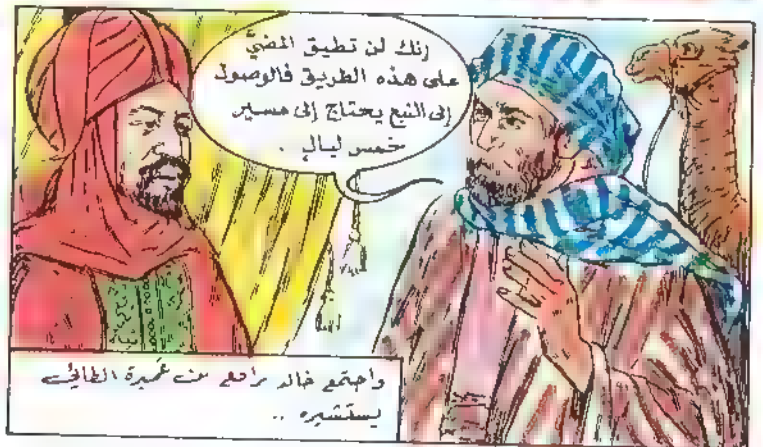 إنك لن تطيق المضيَّ
على هذه الطريق فالوصول
إلى النبع يحتاج إلى مسير
خمس ليالٍ .
واجتمع خالد برافع بن عميرة الطائي
يستشيره ..